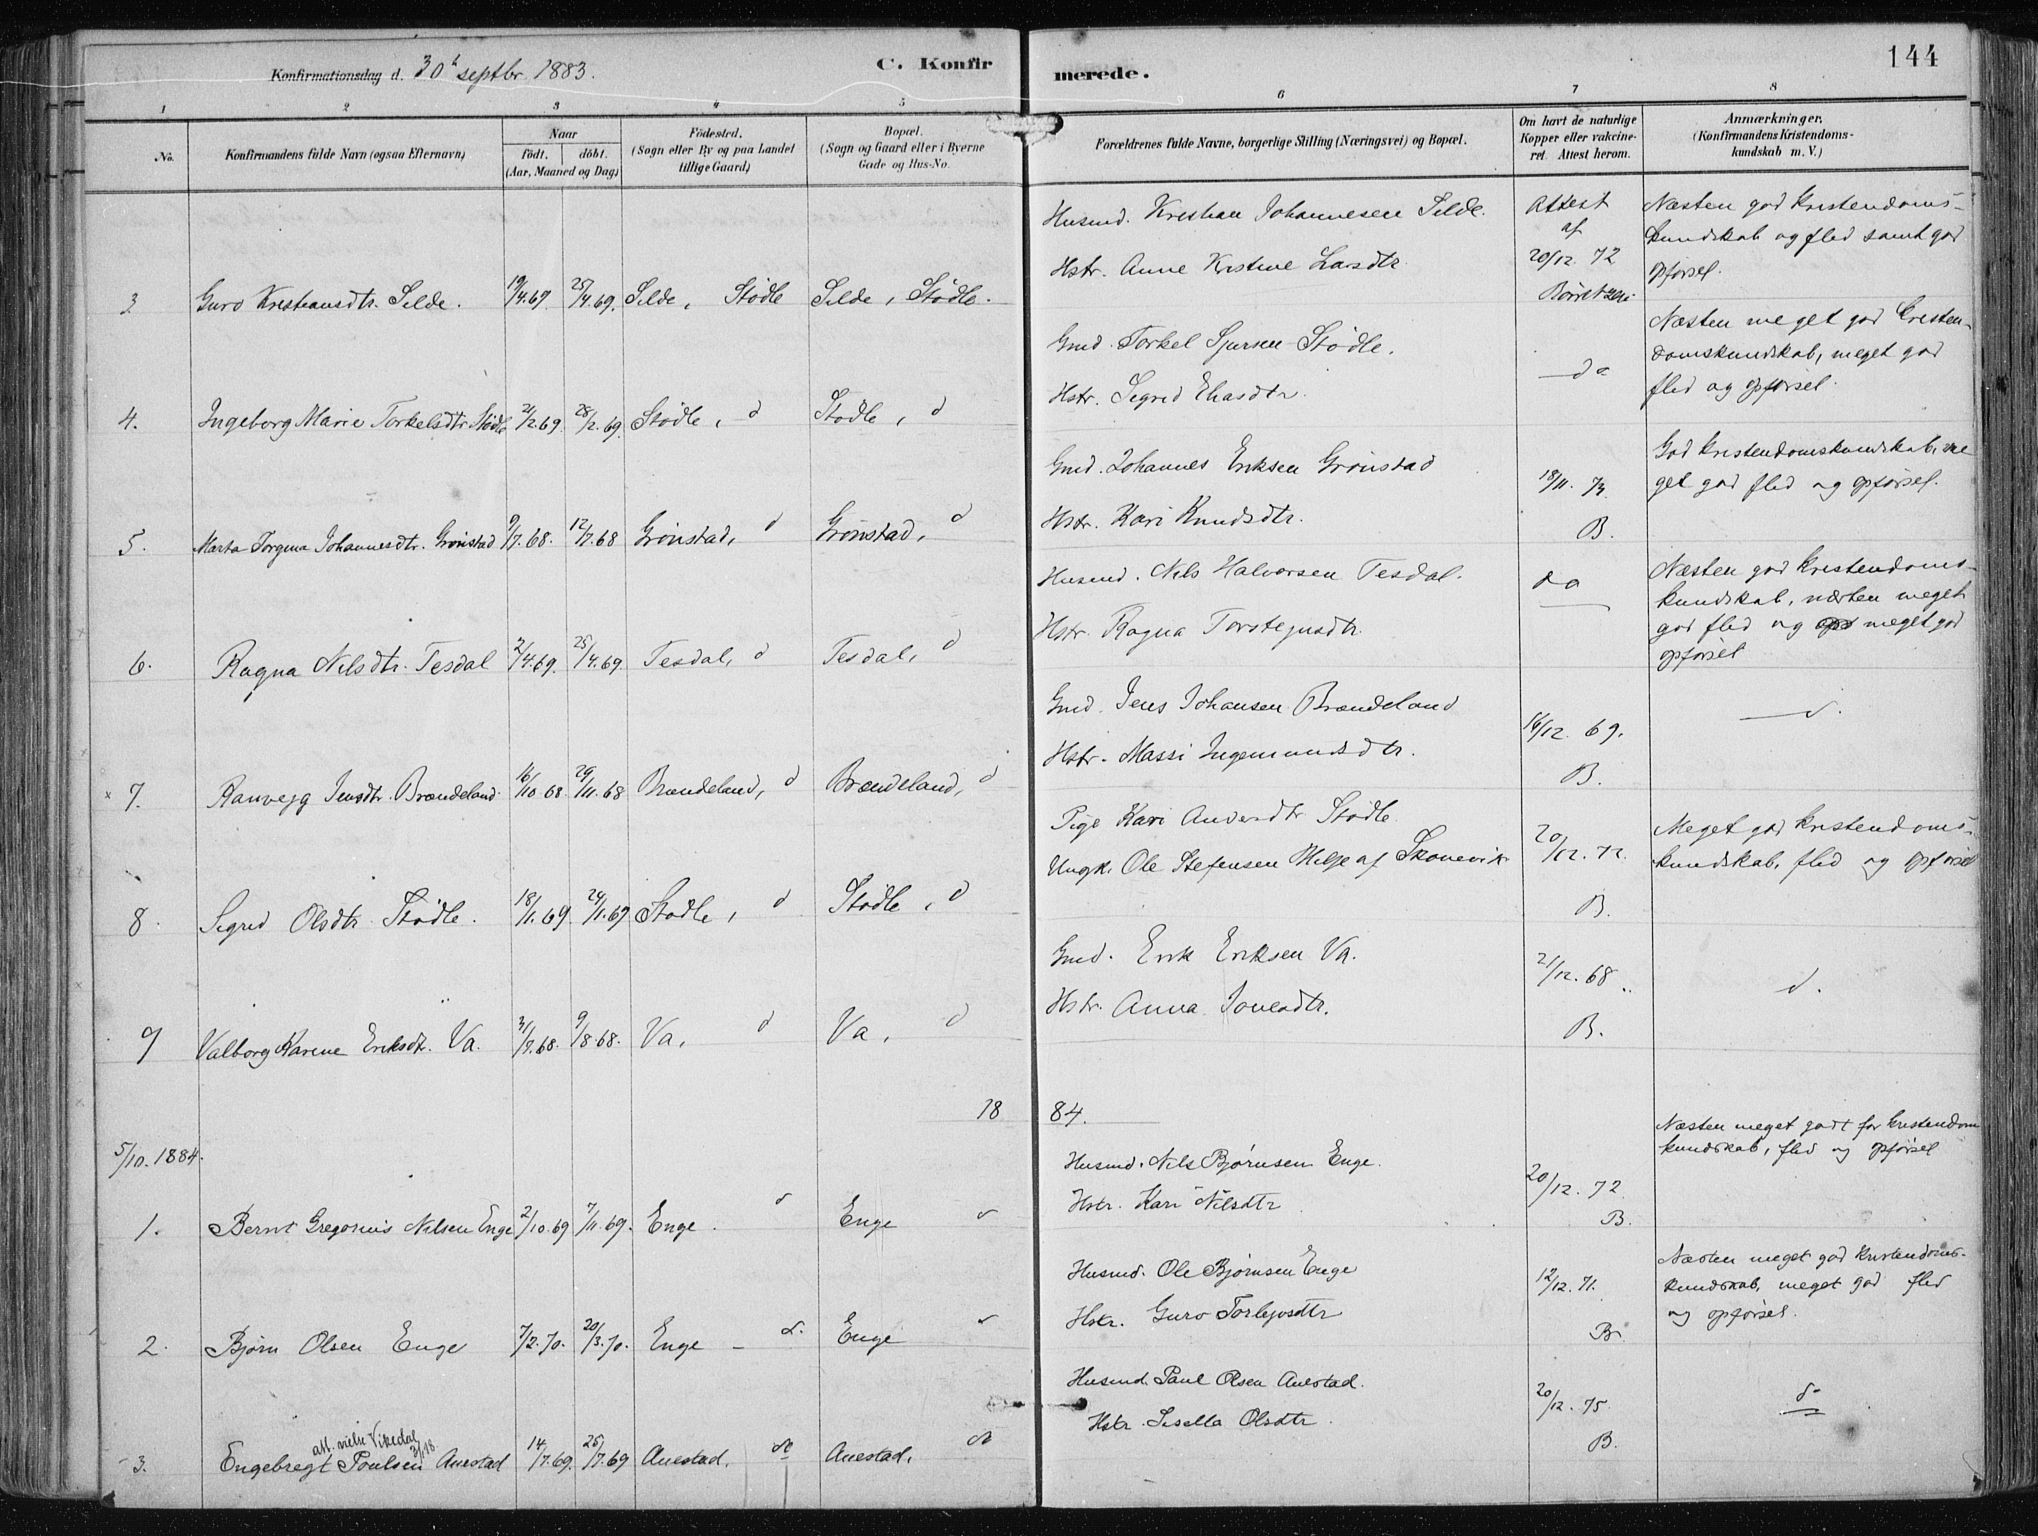 Konfirmationsdag d. 30te septbr. 1883.
C. Konfirmerede.
144
1 2 3 4 5 6 7 8
No.
Konfirmandens fulde Navn (ogsaa Efternavn)
Naar
födt. döbt.
(Aar, Maaned og Dag)
Födested.
(Sogn eller By og paa Landet
tillige Gaard)
Bopæl.
(Sogn og Gaard eller i Byerne
Gade og Hus-No.
Forældrenes fulde Navne, borgerlige Stilling (Næringsvei) og Bopæl.
Om havt de naturlige
Kopper eller vakcine-
ret. Attest herom.
Anmærkninger.
(Konfirmandens Kristendoms-
kundskab m. V.)
Husmd. Kristian Johannesen Silde.
Hstr. Anne Kristine Larsdtr.
Attest
af
20/12. 72
Næsten god kristendoms-
kundskab og flid samt god
opførsel.
3 Guro Kristiansdtr. Silde. 19/4.69. 25/4.69. Silde, Stødle Silde, Stødle.
Gmd. Torkel Sjursen Stødle.
Hstr. Sigrid Eliasdtr.
do
Næsten meget god Cristen-
domskundskab, meget god
flid og opførsel.
4. Ingeborg Marie Torkelsdtr. Stødle 21/2.69. 28/2.69. Stødle, d Stødle, d
Gmd. Johannes Eriksen Grønstad
Hstr. Kari Knudsdtr.
18/11. 73.
B.
God kristendomskundskab, me
get god flid og opførsel.
5. Marta Torgina Johannesdtr. Grønstad 9/7.68. 12/7.68 Grønstad, d Grønstad, d
Husmd. Nils Halvorsen Tesdal.
Hstr. Ragna Torsteinsdtr.
do
Næsten god kristendoms-
kundskab, næsten meget
god flid og meget god
opførsel
6. Ragna Nilsdtr. Tesdal 2/4.69. 25/4.69. Tesdal, d Tesdal, d
Gmd. Jens Johansen Brændeland
Hstr. Massi Ingemundsdtr.
16/12. 69.
B.
d.
x 7. Ranveig Jensdtr. Brændeland 16/10.68. 29/11.68 Brændeland, d Brændeland, d
Pige Kari Andersdtr Stødle
Ungk. Ole Stefensen Milje af Skonevik
20/12. 72.
B.
Meget god kristendoms-
kundskab, flid og opførsel
8. Sigrid Olsdtr. Stødle. 18/1.69. 24/1.69 Stødle, d Stødle, d
Gmd. Erik Eriksen Va.
Hstr. Anna Jonesdtr.
21/12. 68
B.
d.
9 Valborg Karine Eriksdtr. Va. 31/7.68. 9/8.68. Va, d Va, d
18 84.
5/10. 1884.
Husmd. Nils Bjørnsen Enge.
Hstr. Kari Nilsdtr
20/12. 72
B.
Næsten meget godt for kristendom
kundskab, flid og opførsel
1. Bernt Gregorius Nilsen Enge 2/10.69 7/11.69. Enge. d Enge d
Husmd. Ole Bjørnsen Enge
Hstr. Guro Torbjosdtr
12/12. 71.
Br.
Næsten meget god kristendoms-
kundskab, meget god flid
og opførsel.
2. Bjørn Olsen Enge 7/2.70. 20/3.70. Enge d. Enge d
Husmd. Paul Olsen Auestad.
Hstr. Sisella Olsdtr.
20/12. 75
B.
d
att. Vikedal 3/18
3. Engebregt Poulsen Auestad 14/7.69. 25/7.69 Auestad. do Auestad. do